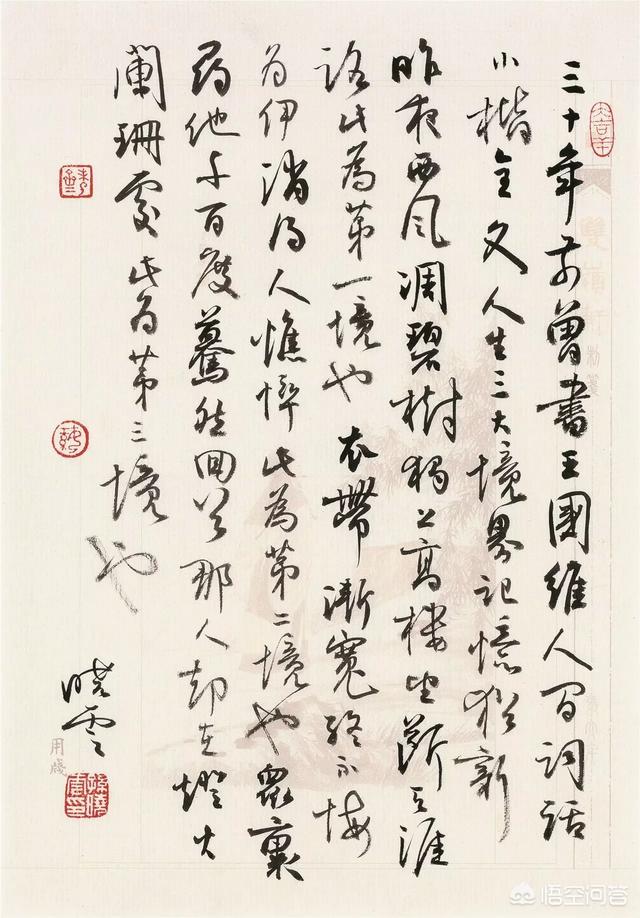 三十年前曾書王國維人間詞話
小楷全文人生三大境界記憶猶新
昨夜西風凋碧樹獨上高樓望斷天涯
路此為第一境也衣帶漸寬終不悔
為伊消得人憔悴此為第二境也眾裏
尋他千百度驀然回首那人却在燈火
闌珊處此為第三境也
曉雲
孫曉雲印
悟空问答